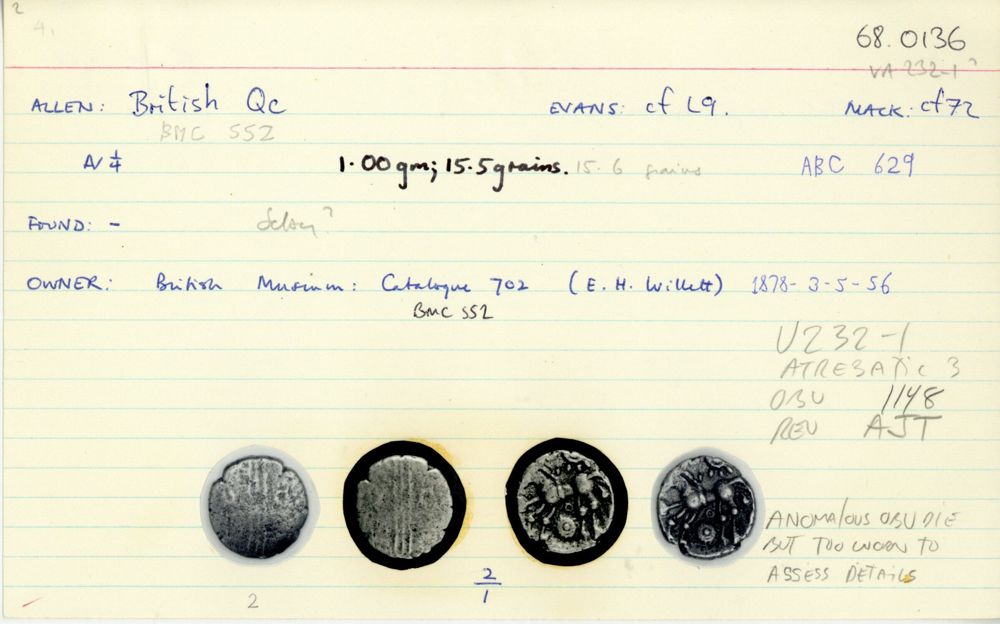 2
4.
68.0136
VA 232-1?
ALLEN: British Qc EVANS: cf L9. MACK: cf 72
BMC 552
A/ 1/4 1.00 gm; 15.5 grains. 15.6 grains ABC 629
FOUND: - Selsey?
OWNER: British Museum: Catalogue 702 (E. H. Willett) 1878-3-5-56
BMC 552
V232-1
ATREBATIC 3
OBV 1148
REV AJT
ANOMALOUS OBV DIE
BUT TOO WORN TO
ASSESS DETAILS
2/1
2